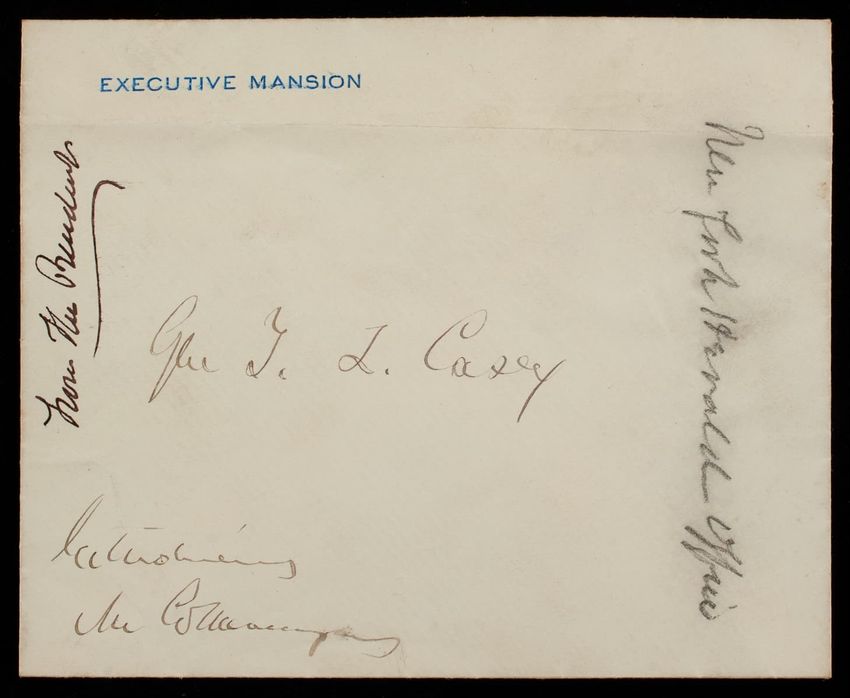 EXECUTIVE MANSION
from the President
Gen T. L. Casey
Introducing
Mr
New York Herald Office